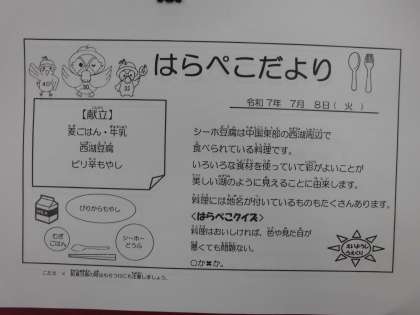 はらぺこだより
令和7年 7月 8日(火)
【献立】
麦ごはん・牛乳
西湖豆腐
ピリ辛もやし
シーホ豆腐は中国東部の西湖周辺で
食べられている料理です。
いろいろな食材を使っていて彩がよいことが
美しい湖のように見えることに由来します。
料理には地名が付いているものもたくさんあります。
<はらぺこクイズ>
料理はおいしければ、色や見た目が
悪くても問題ない。
○か✖か。
ぴりからもやし
むぎ
ごはん
シーホー
どうふ
こたえ ✖